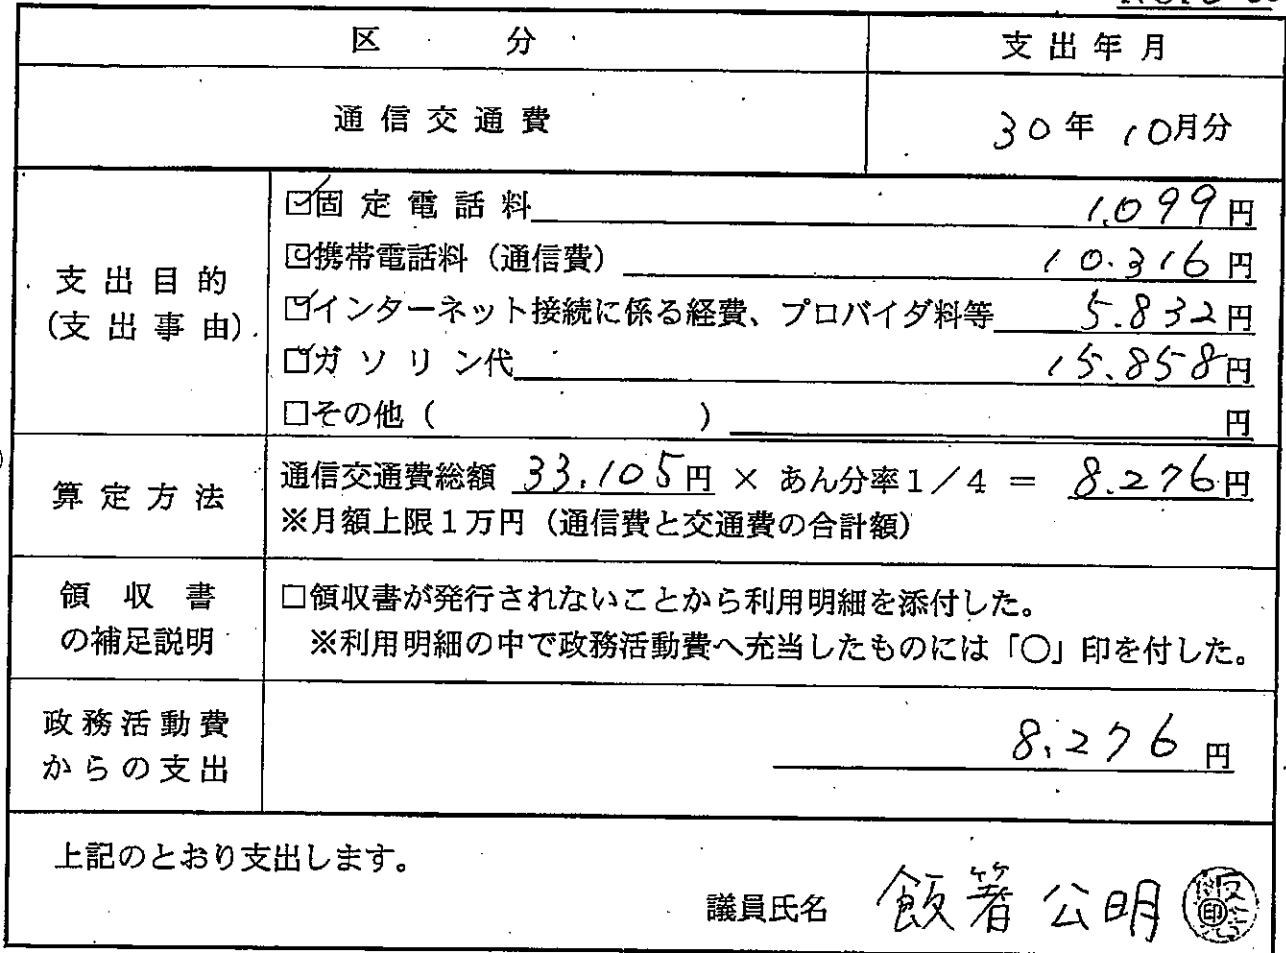 区 分
支出年月
通信交通費
30年10月分
支出目的
(支出事由)
☑固定電話料 1,099円
☑携帯電話料(通信費) 10.316円
☑インターネット接続に係る経費、プロバイダ料等 5.832円
☑ガソリン代 15.858円
□その他( ) 円
算定方法
通信交通費総額 33,105円 × あん分率1/4 = 8.276円
※月額上限1万円(通信費と交通費の合計額)
領収書
の補足説明
□領収書が発行されないことから利用明細を添付した。
※利用明細の中で政務活動費へ充当したものには「○」印を付した。
政務活動費
からの支出
8,276円
上記のとおり支出します。
議員氏名 飯箸公明 印